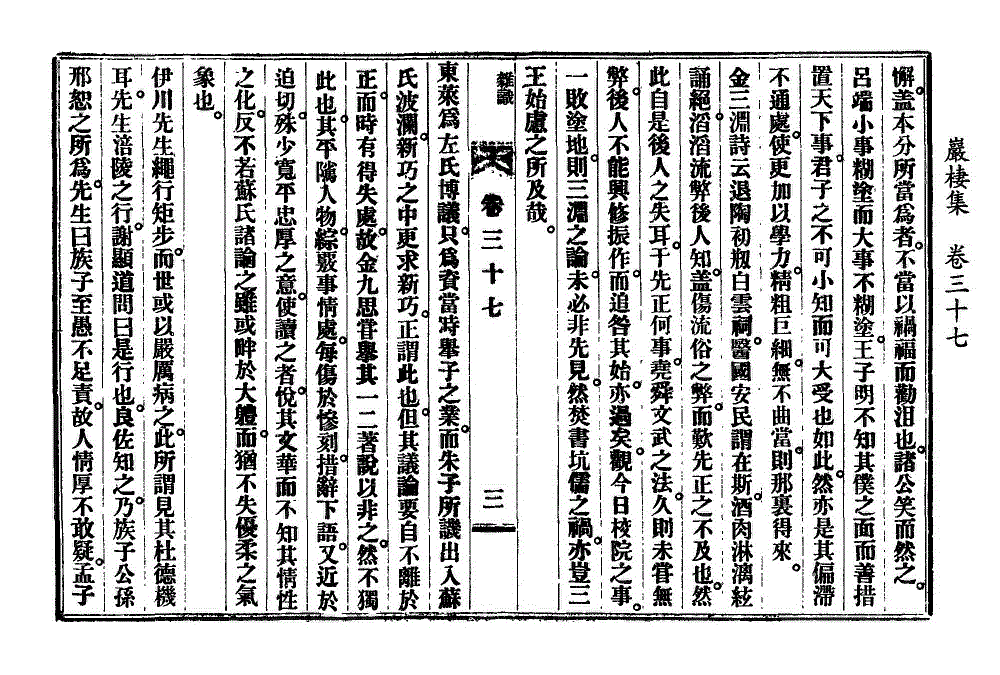 巖棲集　卷三十七
懈。盖本分所當爲者。不當以禍福而勸沮也。諸公笑而然之。
呂端小事糊塗而大事不糊塗。王子明不知其僕之面而善措
置天下事。君子之不可小知而可大受也如此。然亦是其偏滯
不通處。使更加以學力。精粗巨細。無不曲當。則那裏得來。
金三淵詩云退陶初刱白雲祠。醫國安民謂在斯。酒肉淋漓絃
誦絕。滔滔流弊後人知。盖傷流俗之弊。而歎先正之不及也。然
此自是後人之失耳。于先正何事。堯舜文武之法。久則未甞無
弊。後人不能興修振作。而追咎其始。亦過矣。觀今日校院之事。
一敗塗地。則三淵之論。未必非先見。然焚書坑儒之禍。亦豈三
王始慮之所及哉。
雜識
卷三十七
三
東萊爲左氏博議。只爲資當時擧子之業。而朱子所譏出入蘇
氏波瀾。新巧之中更求新巧。正謂此也。但其議論要自不離於
正。而時有得失處。故金九思甞擧其一二著說以非之。然不獨
此也。其平隲人物。綜覈事情處。每傷於慘刻。措辭下語。又近於
迫切。殊少寬平忠厚之意。使讀之者。悅其文華而不知其情性
之化。反不若蘇氏諸論之雖或畔於大軆。而猶不失優柔之氣
象也。
伊川先生繩行矩步。而世或以嚴厲病之。此所謂見其杜德機
耳。先生涪陵之行。謝顯道問曰是行也。良佐知之。乃族子公孫
邢恕之所爲。先生曰族子至愚不足責。故人情厚不敢疑。孟子